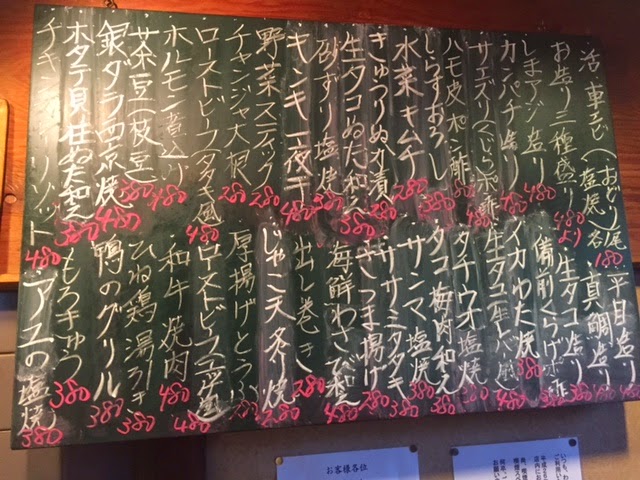 活・車えび(おどり 塩焼 各一尾 180
お造り三種盛り 480より
しまアジ造り 480
カンパチ造り 480
サエズリ(くじら)ポン酢 480
ハモ皮ポン酢 380
しらすおろし 280
水菜キムチ 280
きゅうりぬか漬 280
生タコぬた和え 380
砂ずり塩焼 380
キンキ一夜干 480
野菜スティック 280
チャンジャ大根 280
ローストビーフ(タタキ風 480
ホルモン煮込み 480
茶豆(枝豆) 380
銀ダラ西京焼 480
ホタテ貝柱ぬた和え 380
チキン リゾット 480
平目造り 480
真鯛造り 480
生タコ造り 480
備前くらげポン酢 380
イカわた焼 380
生タコ
タチウオ塩焼 480
タコ梅肉和え 380
サンマ塩焼 380
ササミタタキ 380
さつま揚げ 380
海鮮わさび和え 380
出し巻き 280
じゃこ天炙焼 280
厚揚げとうふ 380
ローストビーフ 480
和牛焼肉 480
ひね鶏湯引き 380
鴨のグリル 380
もろきゅう 380
アユの塩焼 380
お客様各位
いつも、わ